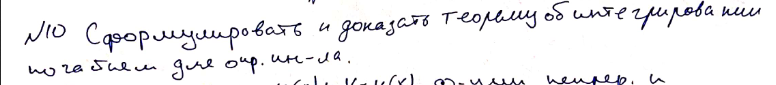 №10 Сформулировать и доказать теорему об интегрировании
по частям для опр. ин-ла.